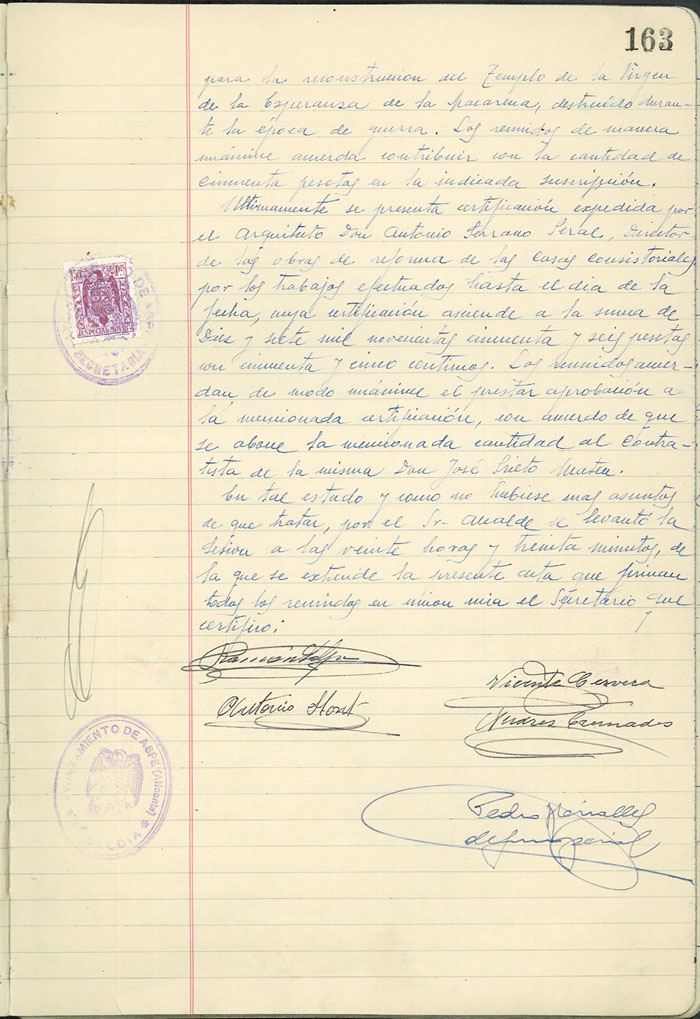 163
para la reconstruccion del Templo de la Virgen
de la Esperanza de la Macarena, destruido duran-
te la época de guerra. Los reunidos de manera
unánime acuerda contribuir con la cantidad de
cincuenta pesetas en la indicada suscripción.
Ultimamente se presenta certificación expedida por
el Arquitecto Don Antonio Serrano Peral, Director
de las obras de reforma de las Casas Consistoriales
por los trabajos efectuados hasta el dia de la
fecha, cuya certificación asciende a la suma de
Diez y siete mil novecientas cincuenta y seis pesetas
con cincuenta y cinco centimos. Los reunidos acuer-
dan de modo unánime el prestar aprobación a
la mencionada certificación, con acuerdo de que
se abone la mencionada cantidad al Contra-
tista de la misma Don José Prieto
En tal estado y como no hubiese mas asuntos
de que tratar, por el Sr. Alcalde se levantó la
sesion a las veinte horas y treinta minutos, de
la que se extiende la presente acta que firman
todos los reunidos en union mia el Secretario que
certifico:
Ramón
Vicente Cervera
Antonio
Andres
Pedro
ESPECIAL MOVIL
SECRETARIA
AYUNTAMIENTO DE ASPE (Alicante)